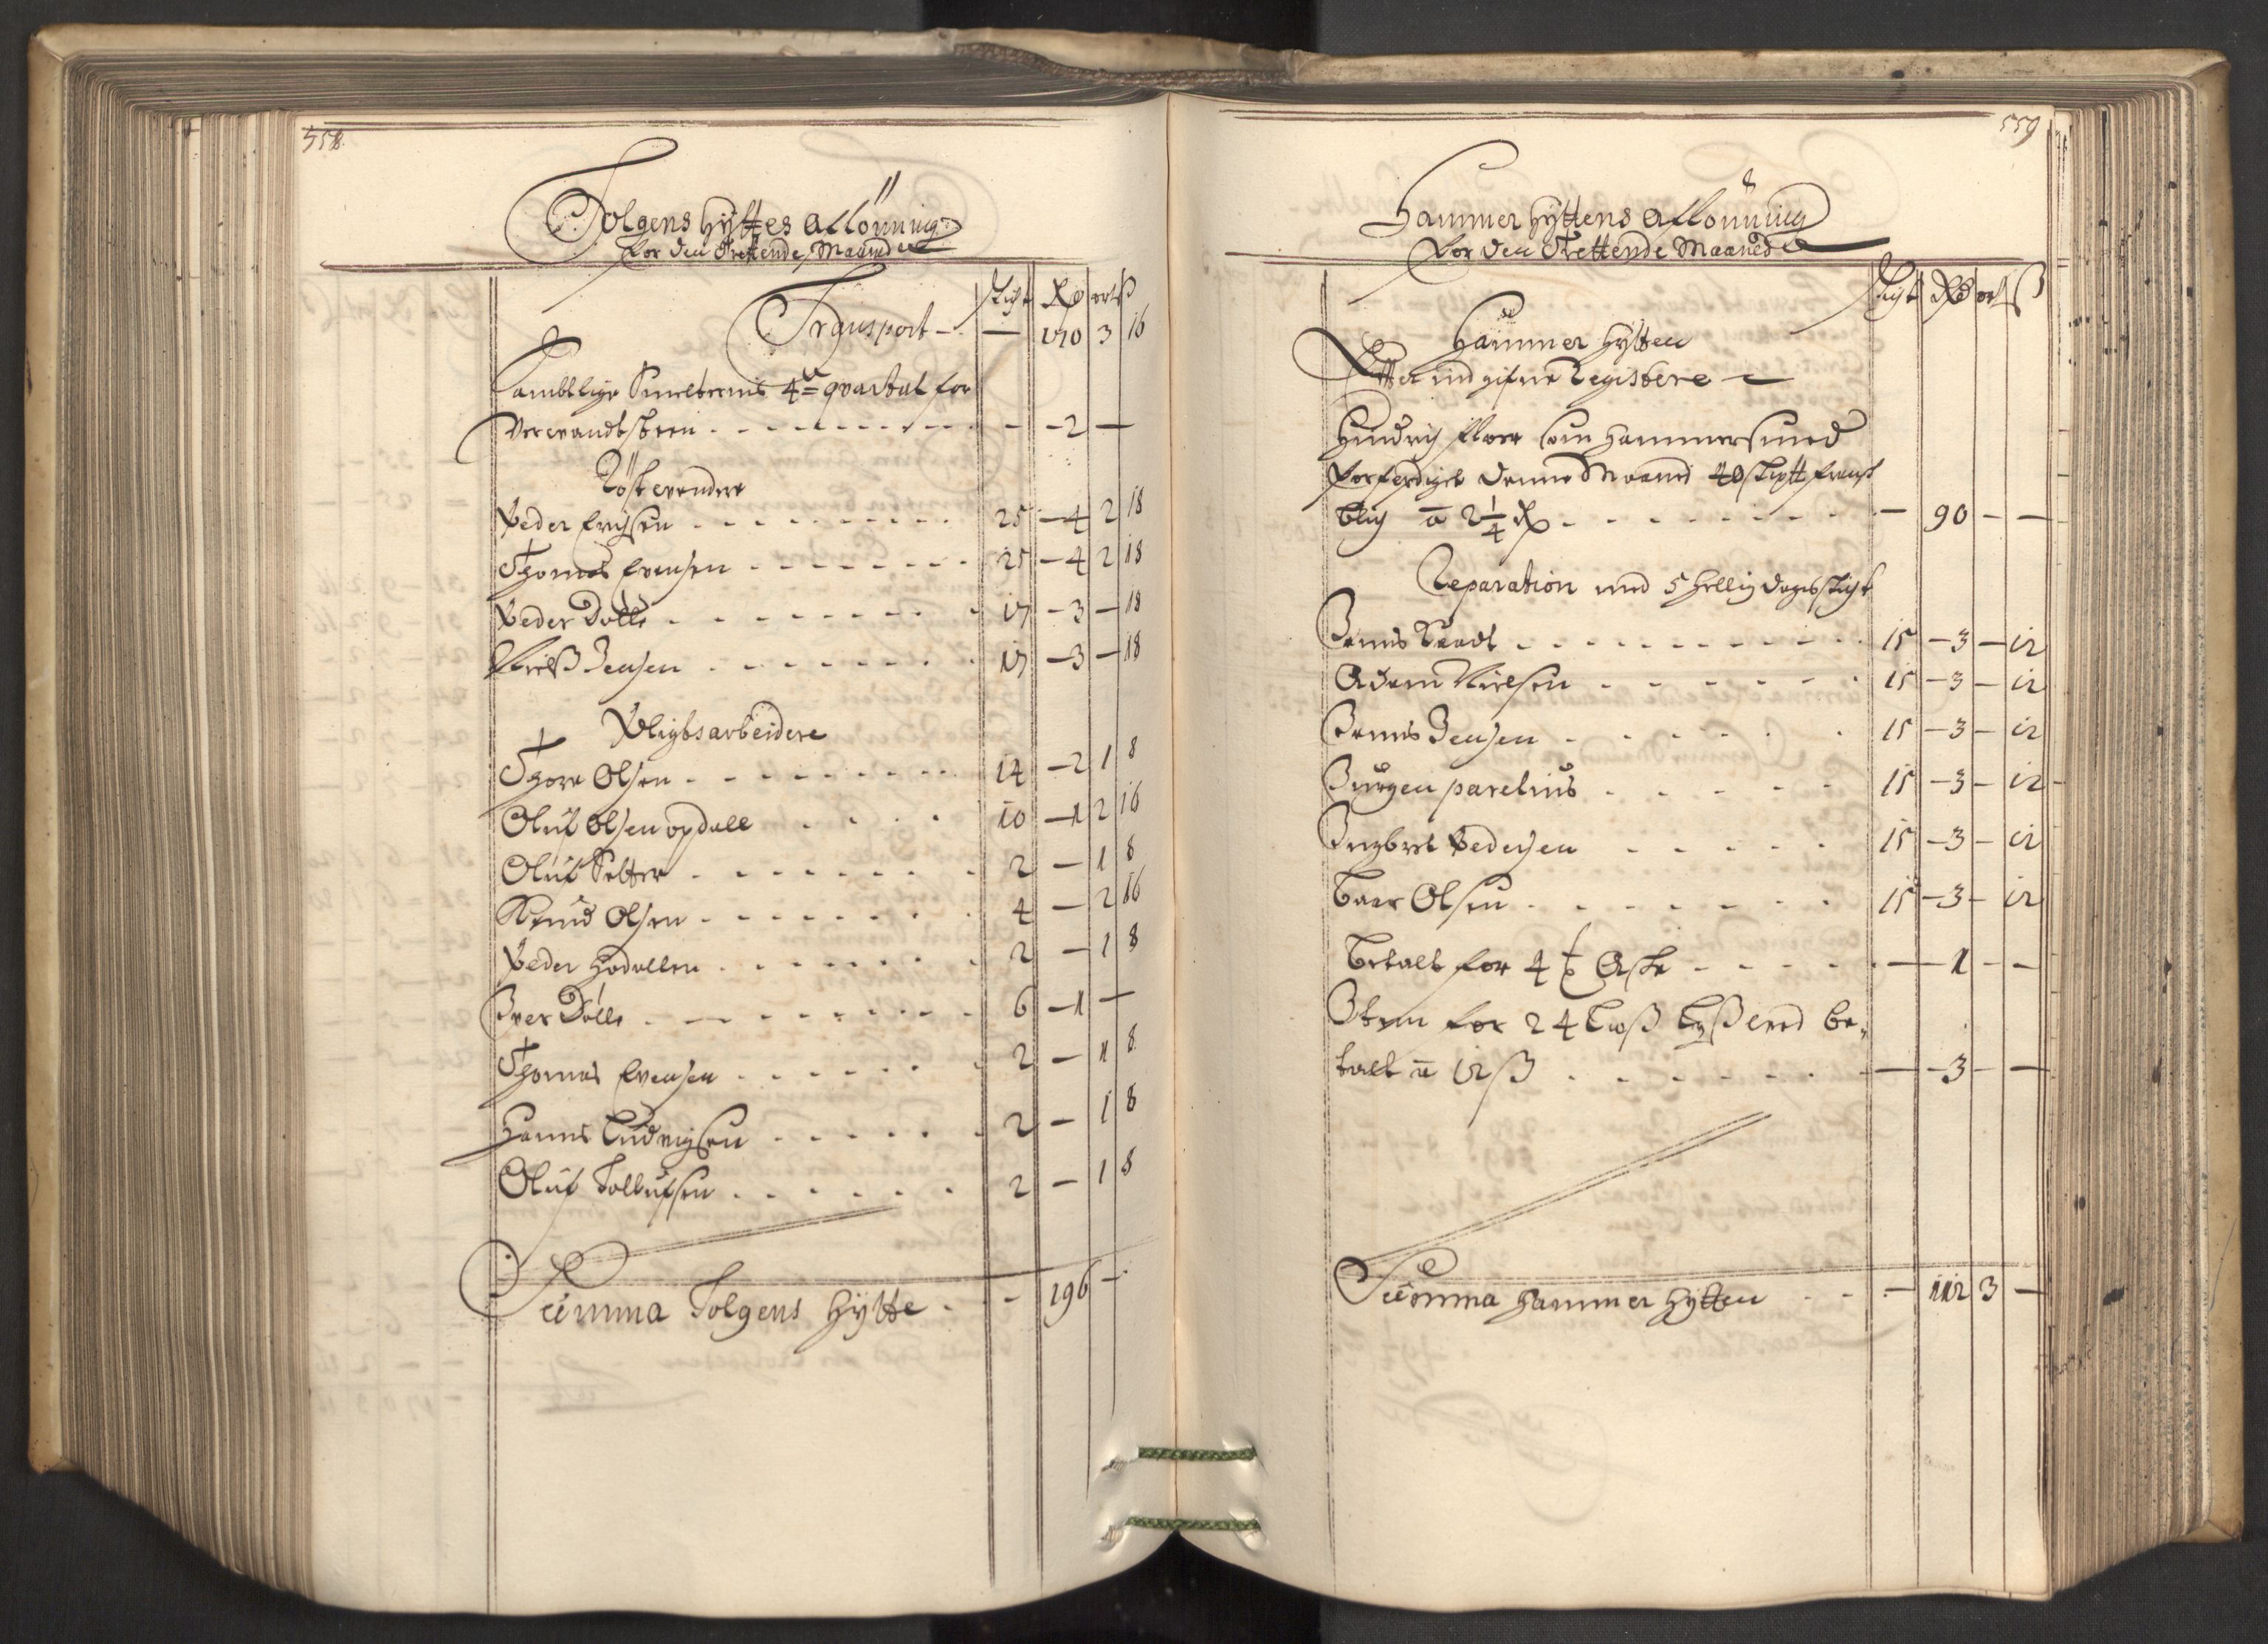 558.
Tolgens Hyttes Aflönning
for den Trettende Maaned
Skigt Rd ort ß
Transport - — 170 3 16
Sambtlige Smelternis 4de qvartal for
Verwandtskeen - — 2 —
Röstvendere
Peder Erichsen 25 — 4 2 18
Thomas Evensen 25 — 4 2 18
Peder Dölle 17 — 3 — 18
Nielß Jensen 17 — 3 — 18
Pligtsarbeidere
Thore Olsen 14 — 2 1 8
Oluf Olsen opdall 10 — 1 2 16
Oluf Setter 2 — 1 8
Knud Olsen 4 — 2 16
Peder Hodallen 2 — 1 8
Iver Dölle 6 — 1 —
Thomas Evensen 2 — 1 8
Hanns Ludvigsen 2 — 1 8
Oluf Tollufsen 2 — 1 8
Summa Tolgens Hytte - - 196 —
559
Hammer Hyttens Aflönning
for den Trettende Maaned
Skigt Rd ort ß
Hammer Hytten
Efter indgifne Registere
Hindrich Floer som Hammersmed
forferdiget denne Maaned 40
a 2 1/4 Rd — 90 — —
Reparation med 5 hellig dags skigt
15 — 3 — 12
Adam Nielsen 15 — 3 — 12
Jensen 15 — 3 — 12
Jürgen parelius 15 — 3 — 12
Ingbret Pedersen 15 — 3 — 12
Baar Olsen 15 — 3 — 12
Betalt for 4 tr Aske — 1 — —
Item for 24 Læß be-
talt a 12 ß — 3 — —
Summa Hammer Hytten — 112 3 —